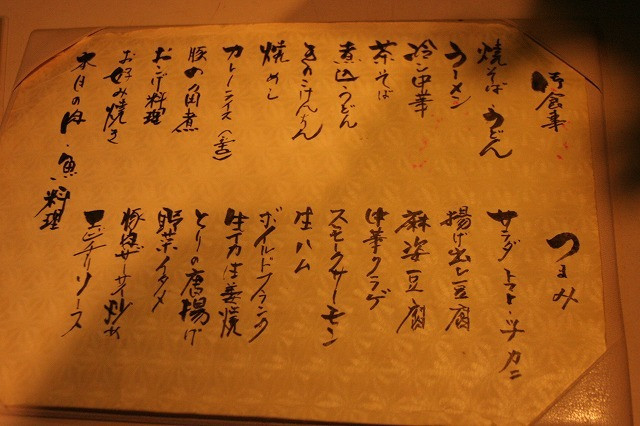 御食事
焼そば うどん
ラーメン
冷し中華
茶そば
煮込うどん
きのこけんちん
焼めし
カレーライス
豚の角煮
おこげ料理
お好み焼き
本日の肉・魚料理
つまみ
サラダ トマト・ツナ・カニ
揚げ出し豆腐
麻婆豆腐
中華クラゲ
スモークサーモン
生ハム
ボイルドフランク
生イカ生姜焼
とりの唐揚げ
野菜イタメ
豚肉ザーサイ炒め
エビチリソース